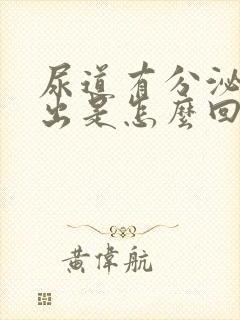 尿道有分泌
出是怎麼回
黃偉航